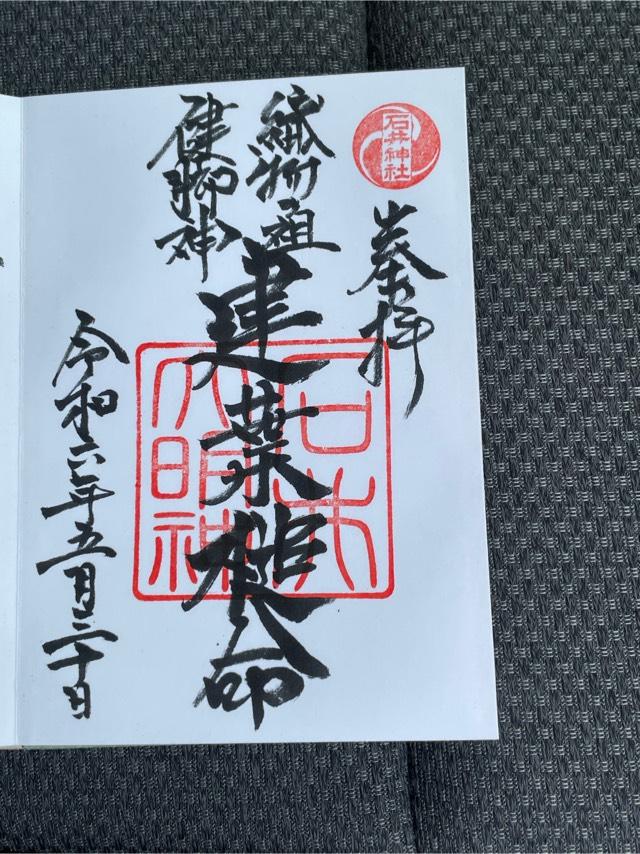 石井神社
奉拝
織物祖
健脚神
建葉槌命
石井
大明神
令和六年五月二十日